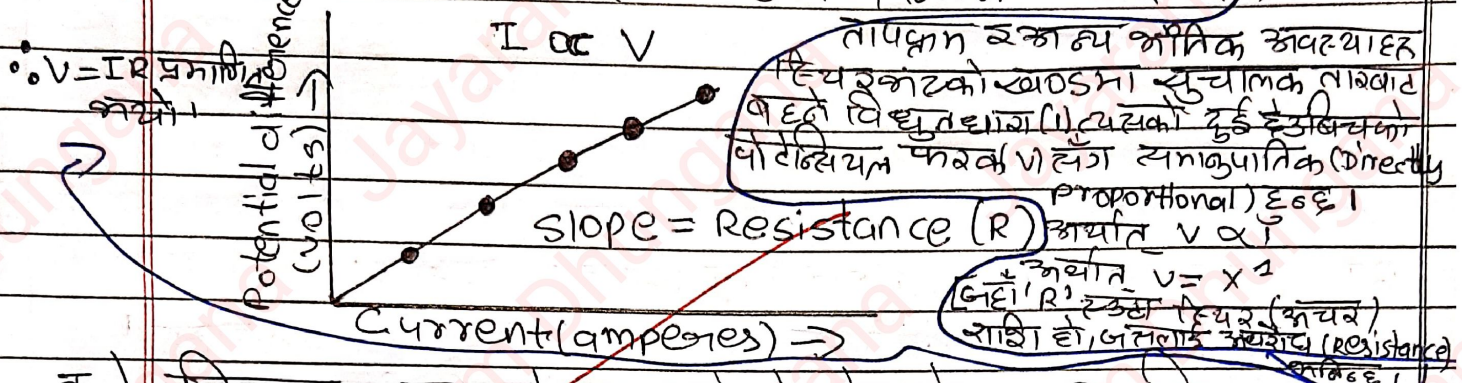 I ∝ V
∴ V=IR प्रमाणित
भयो।
Potential difference
(volts) →
Slope = Resistance (R)
Current (amperes) →
तापक्रम र अन्य भौतिक अवस्थाहरू
स्थिर भएको खण्डमा सुचालक तारबाट
बहने विधुतधारा (I) त्यसको दुई छेउबिचको
पोटेन्सियल फरक (V) सँग समानुपातिक (Directly
proportional) हुन्छ।
अर्थात् V ∝ I
अर्थात् V =
जहाँ 'R' एउटा स्थिर (अचर)
राशि हो, जसलाई अवरोध (Resistance)
भनिन्छ।
Jayarana
Dhungana